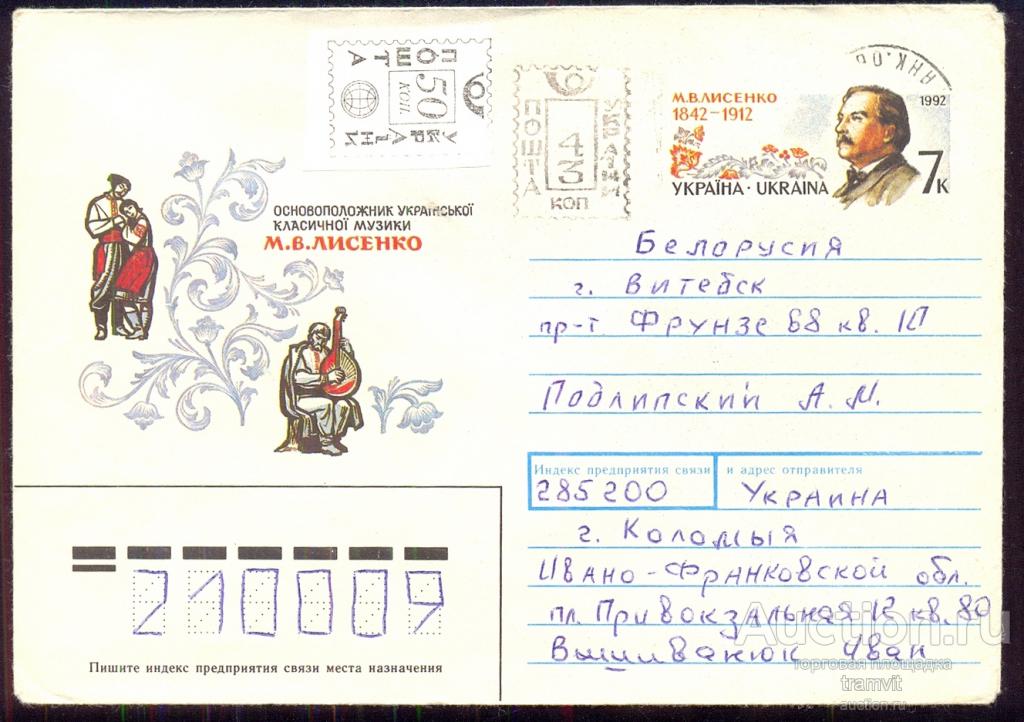 ПОШТА
50 коп.
УКРАЇНИ
ПОШТА
43
КОП
УКРАЇНИ
1992
М.В.ЛИСЕНКО
1842-1912
УКРАЇНА · UKRAINA
7к
ОСНОВОПОЛОЖНИК УКРАЇНСЬКОЇ
КЛАСИЧНОЇ МУЗИКИ
М.В.ЛИСЕНКО
Белорусия
г. Витебск
пр-т. Фрунзе 68 кв.
Подлипский А.М.
Индекс предприятия связи и адрес отправителя
285200 Украина
г. Коломыя
Ивано-Франковской обл.
пл. Привокзальная 12 кв. 80
Вышиванюк Иван
210009
Пишите индекс предприятия связи места назначения
Auction.ru
торговая площадка
tramvit
auction.ru